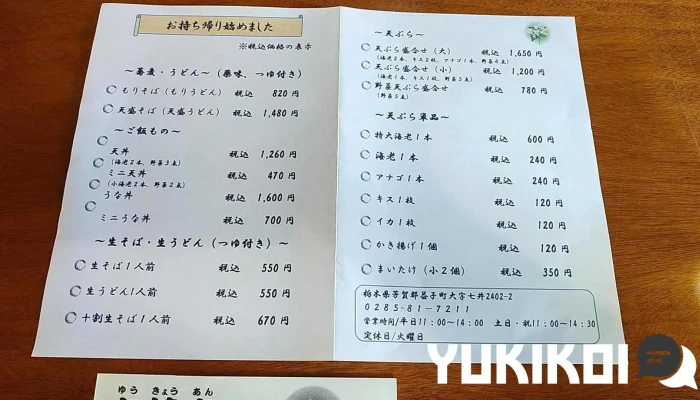 お持ち帰り始めました
※税込価格の表示
～蕎麦・うどん～（薬味、つゆ付き）
もりそば（もりうどん） 税込 820 円
天盛そば（天盛うどん） 税込 1,480 円
～ご飯もの～
天丼 税込 1,260 円
（海老2本、野菜3点）
ミニ天丼 税込 470 円
（小海老2本、野菜2点）
うな丼 税込 1,600 円
ミニうな丼 税込 700 円
～生そば・生うどん（つゆ付き）～
生そば1人前 税込 550 円
生うどん1人前 税込 550 円
十割生そば1人前 税込 670 円
～天ぷら～
天ぷら盛合せ（大） 税込 1,650 円
（海老2本、キス2枚、アナゴ1本、野菜6点）
天ぷら盛合せ（小） 税込 1,200 円
（海老1本、キス1枚、野菜5点）
野菜天ぷら盛合せ 税込 780 円
（野菜5点）
～天ぷら単品～
特大海老1本 税込 600 円
海老1本 税込 240 円
アナゴ1本 税込 240 円
キス1枚 税込 120 円
イカ1枚 税込 120 円
かき揚げ1個 税込 120 円
まいたけ（小2個） 税込 350 円
栃木県芳賀郡益子町大字七井2402-2
0285-81-7211
営業時間/平日11：00～14：00 土日・祝11：00～14：30
定休日/火曜日
ゆう きょう あん
YUKIKOI